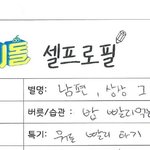 키돌 셀프로필
별명: 남편, 상상 그
버릇/습관: 밥 빨리먹
특기: 위로 빨리 타기